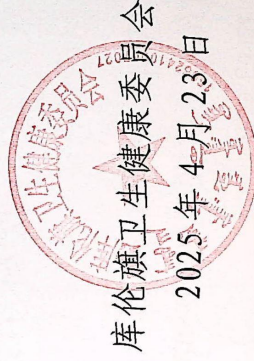 库伦旗卫生健康委员会
2025年4月23日
库伦旗卫生健康委员会